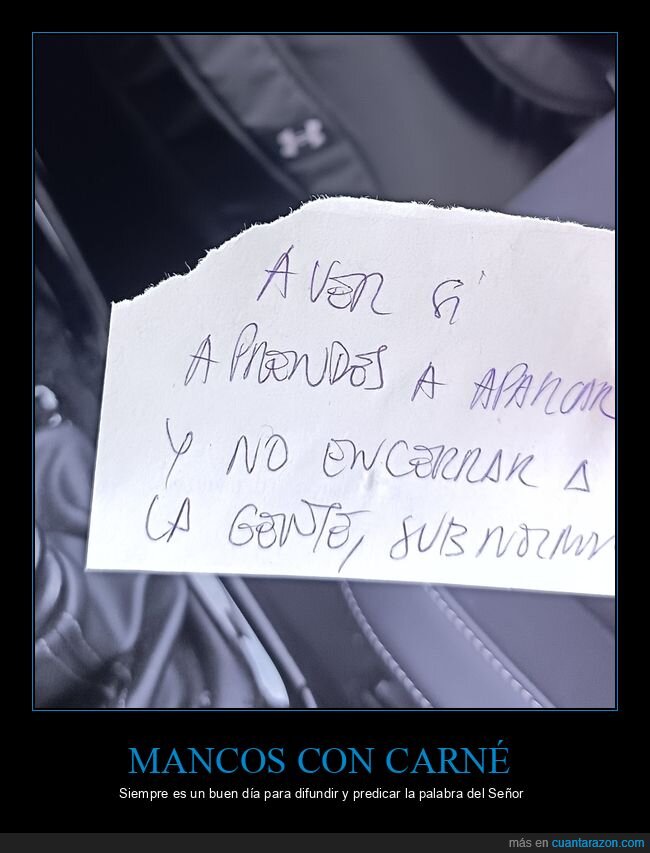 A VER SI
APRENDES A APARCAR
Y NO ENCERRAR A
LA GENTE, SUBNORMA
MANCOS CON CARNÉ
Siempre es un buen día para difundir y predicar la palabra del Señor
más en cuantarazon.com